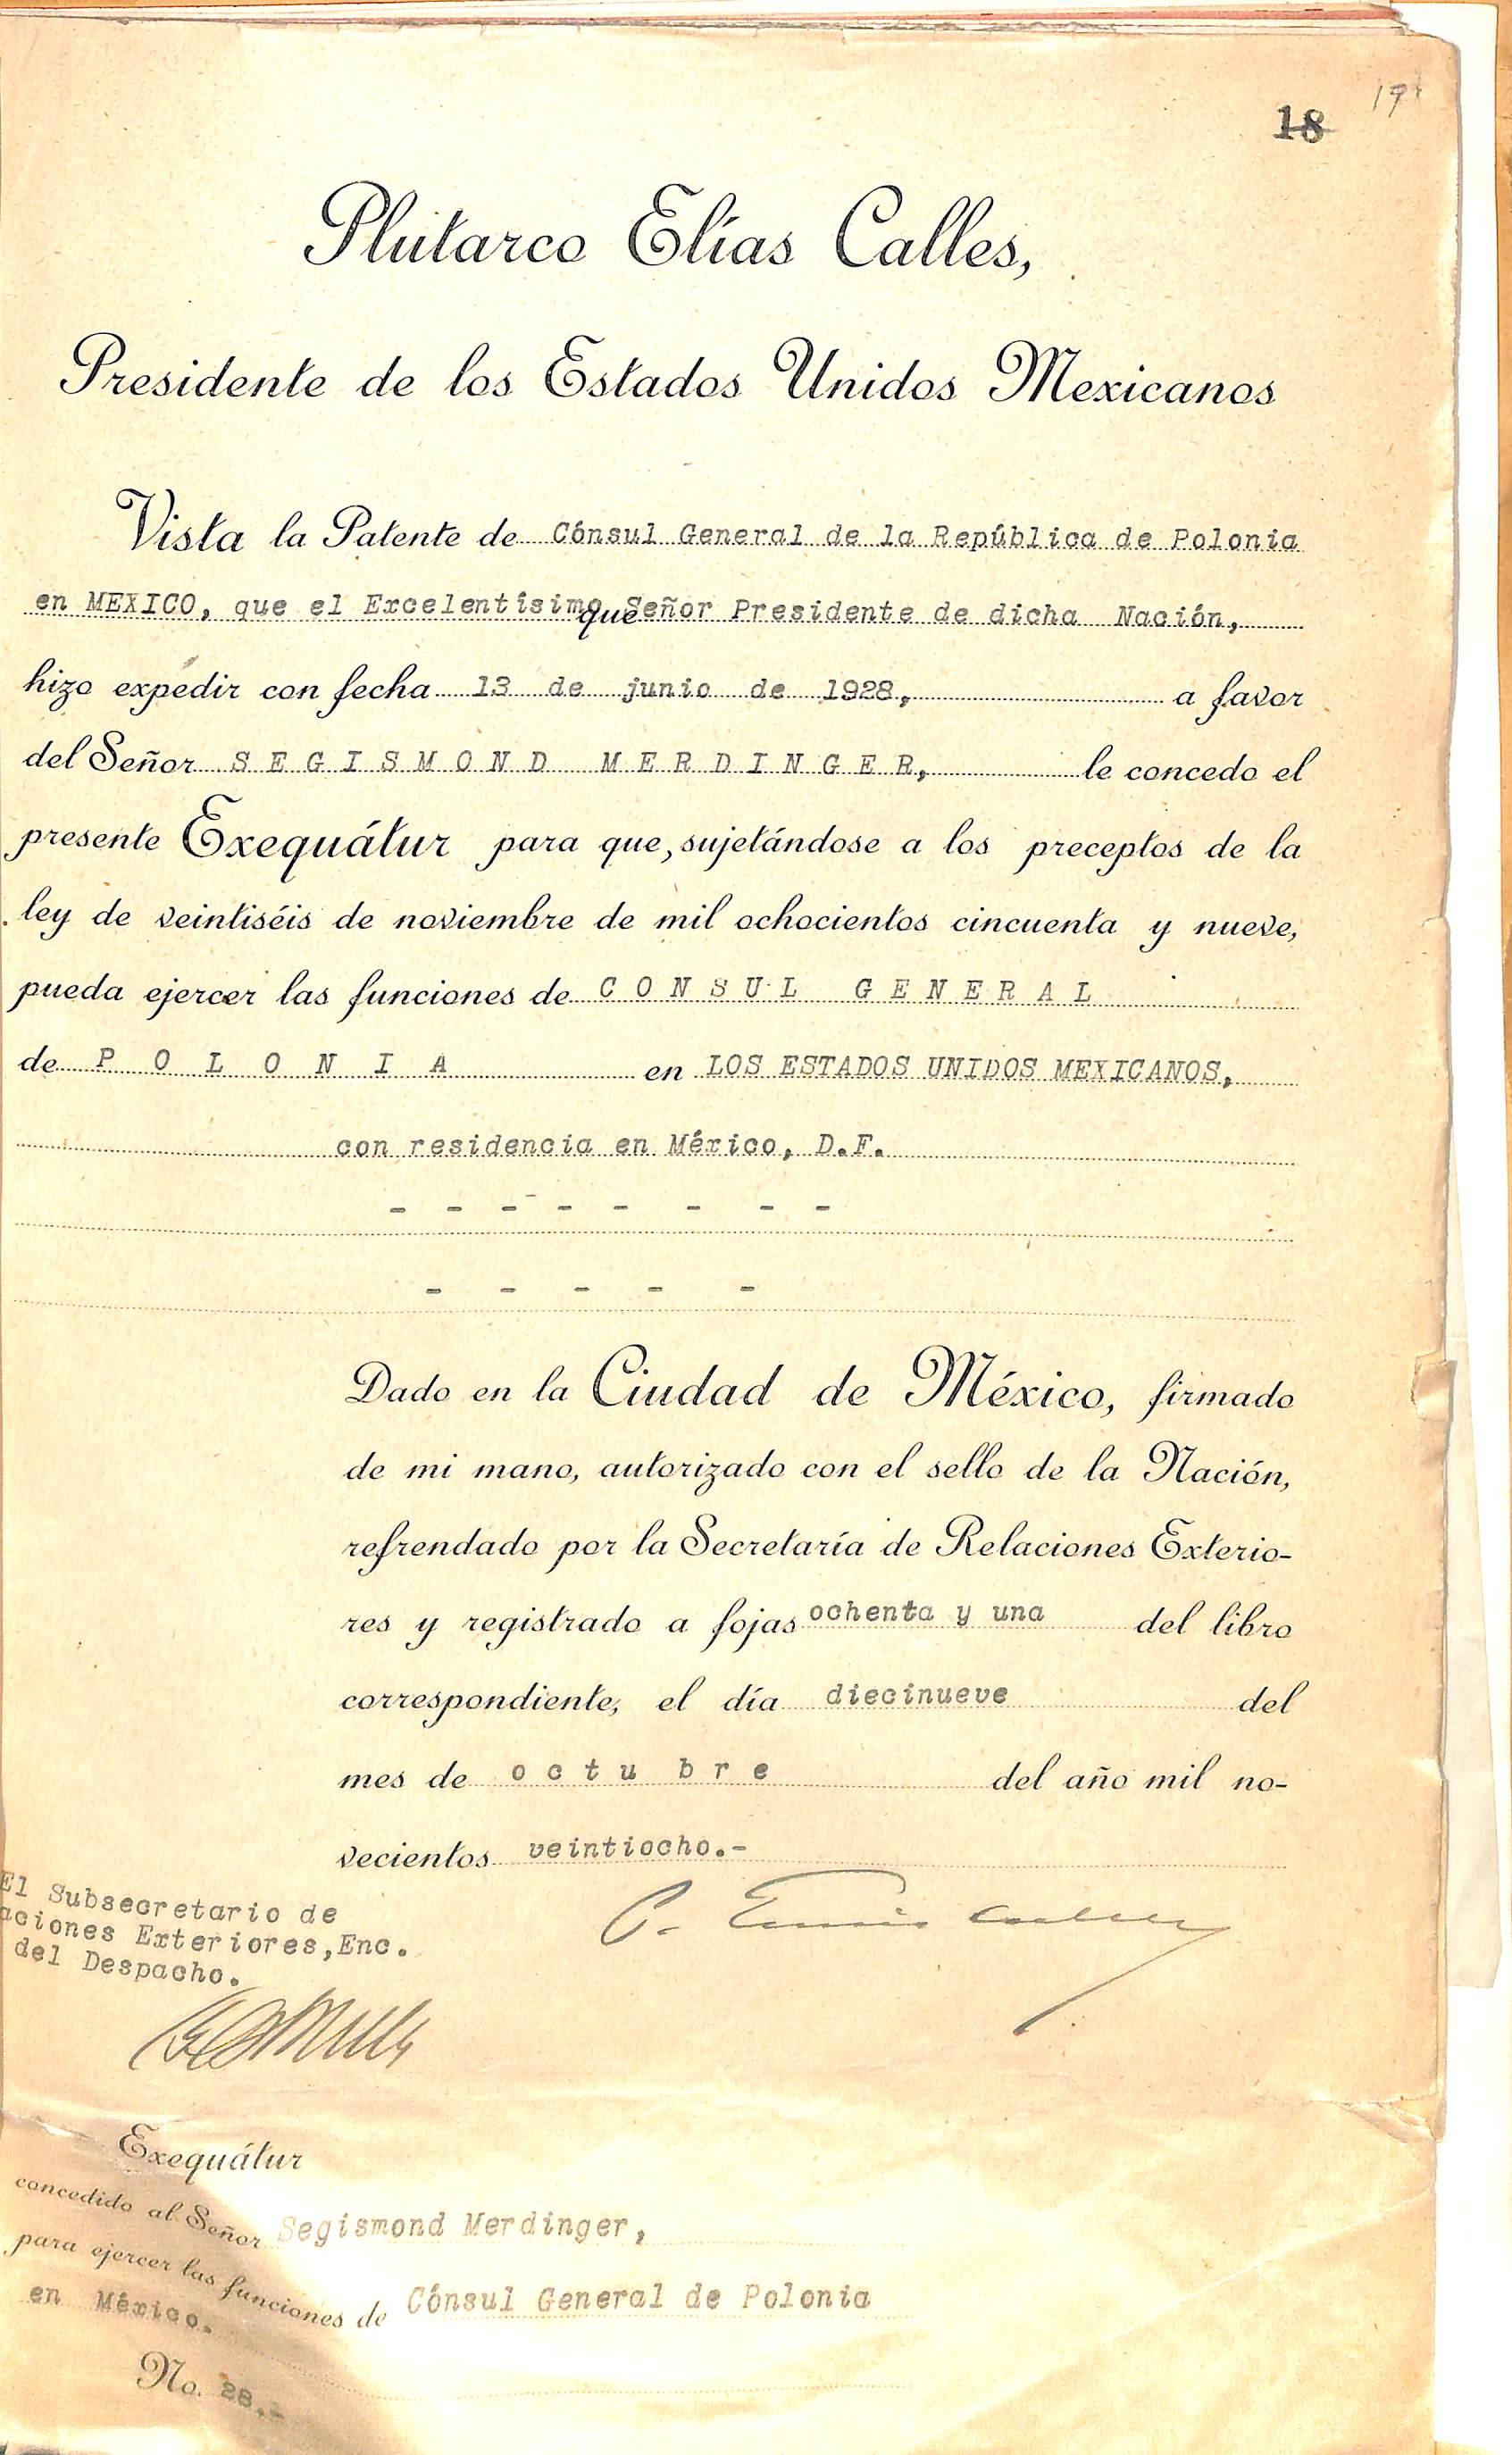 17
18
Plutarco Elías Calles,
Presidente de los Estados Unidos Mexicanos
Vista la Patente de Cónsul General de la República de Polonia
en MEXICO, que el Excelentísimo que Señor Presidente de dicha Nación,
hizo expedir con fecha 13 de junio de 1928, a favor
del Señor SEGISMOND MERDINGER, le concedo el
presente Exequátur para que, sujetándose a los preceptos de la
ley de veintiséis de noviembre de mil ochocientos cincuenta y nueve,
pueda ejercer las funciones de CONSUL GENERAL
de POLONIA en LOS ESTADOS UNIDOS MEXICANOS,
con residencia en México, D.F.
- - - - - - - -
- - - - -
Dado en la Ciudad de México, firmado
de mi mano, autorizado con el sello de la Nación,
refrendado por la Secretaría de Relaciones Exterio-
res y registrado a fojas ochenta y una del libro
correspondiente, el día diecinueve del
mes de octubre del año mil no-
vecientos veintiocho.-
El Subsecretario de
aciones Exteriores, Enc.
del Despacho.
P. Elías Calles
Exequátur
concedido al Señor Segismond Merdinger,
para ejercer las funciones de Cónsul General de Polonia
en México.
No. 28.-